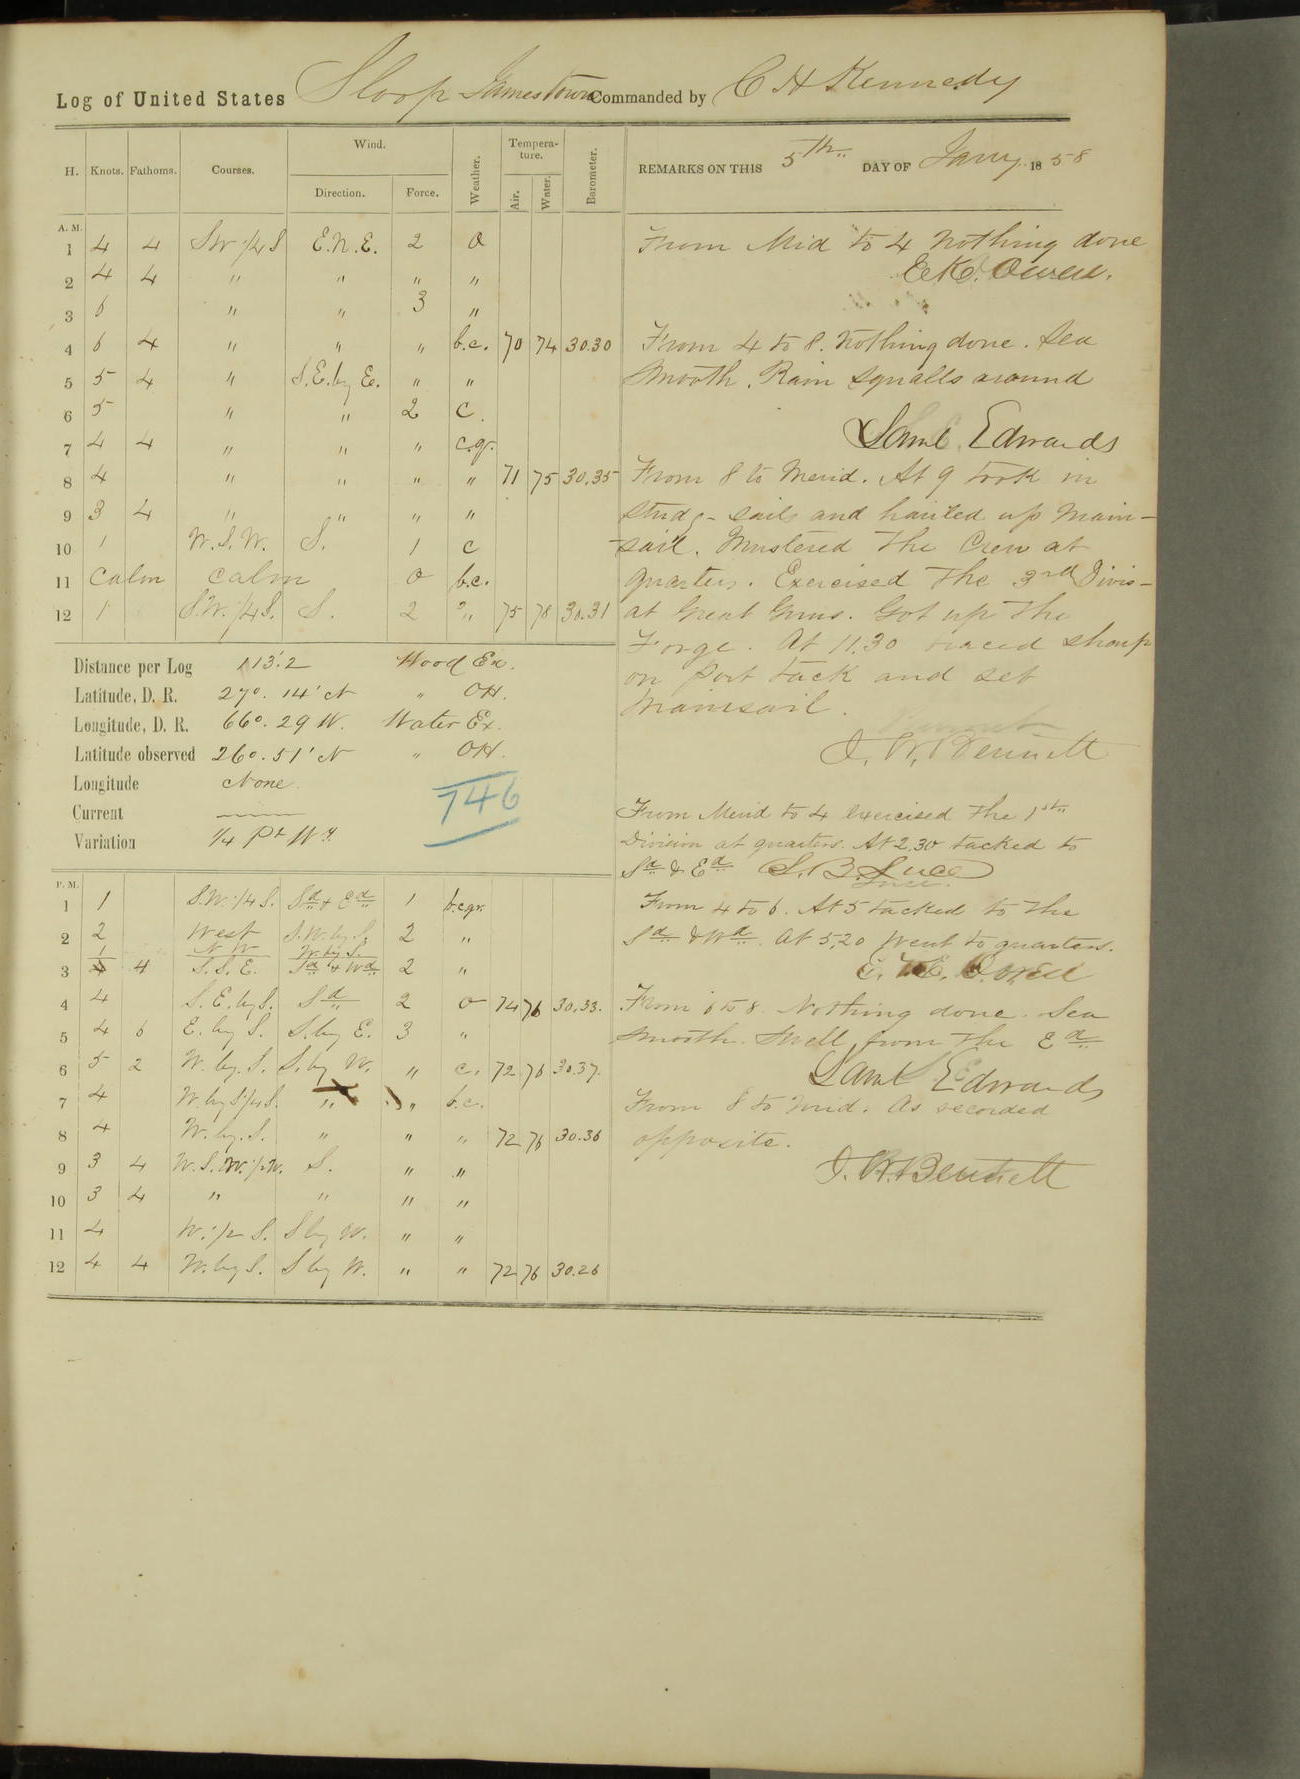 Log of United States Sloop Jamestown Commanded by C H Kennedy
H. Knots. Fathoms. Courses. Wind. Direction. Force. Weather. Tempera-ture. Air. Water. Barometer.
REMARKS ON THIS 5th DAY OF Jany. 1858
A. M.
1 4 4 SW 1/4 S E.N.E. 2 o
2 4 4 " " " "
3 6 " " 3 "
4 6 4 " " " b.c. 70 74 30.30
5 5 4 " S.E. by E. " "
6 5 " " 2 c.
7 4 4 " " " c.q.
8 4 " " " " 71 75 30.35
9 3 4 " " " "
10 1 W.S.W. S. 1 c
11 Calm Calm 0 b.c.
12 1 S.W. 1/4 S. S. 2 " 75 78 30.31
From Mid to 4 Nothing done
From 4 to 8. Nothing done. Sea
Smooth. Rain Squalls around
Saml Edwards
From 8 to Merid. At 9 took in
studg-sails and hauled up Main-
sail. Mustered the Crew at
quarters. Exercised the 3rd Divis-
at Great Guns. Got up the
Forge. At 11.30 braced sharp
on Port tack and set
Mainsail.
J. W. Bennett
Distance per Log 113.2 Wood Ex.
Latitude, D. R. 27°. 14' N " OH.
Longitude, D. R. 66°. 29 W. Water Ex.
Latitude observed 26°. 51' N " OH.
Longitude None.
Current
Variation 1/4 Pt Wy.
746
From Merid to 4 exercised the 1st
Division at quarters. At 2.30 tacked to
Sd & Ed S. B. Luce
Luce.
From 4 to 6. At 5 tacked to the
Sd & Wd. At 5.20 Went to quarters.
From 6 to 8. Nothing done. Sea
Smooth. Swell from the Ed
Saml Edwards
From 8 to Mid. As recorded
opposite.
J. W. Bennett
P. M.
1 1 S.W. 1/4 S. Sd & Ed 1 b.c.q.
2 2 West S.W. by S. 2 "
1 N W W. by S.
3 4 4 S. S. E. Sd & Wd 2 "
4 4 S. E. by S. Sd 2 o 74 76 30.33.
5 4 6 E. by S. S. by E. 3 "
6 5 2 W. by. S. S. by W. " c. 72 76 30.37.
7 4 W. by S 1/4 S. " " b.c.
8 4 W. by. S. " " " 72 76 30.36
9 3 4 W. S. W. 1/2 W. S. " "
10 3 4 " " " "
11 4 W. 1/2 S. S by W. " "
12 4 4 W. by S. S by W. " " 72 76 30.26